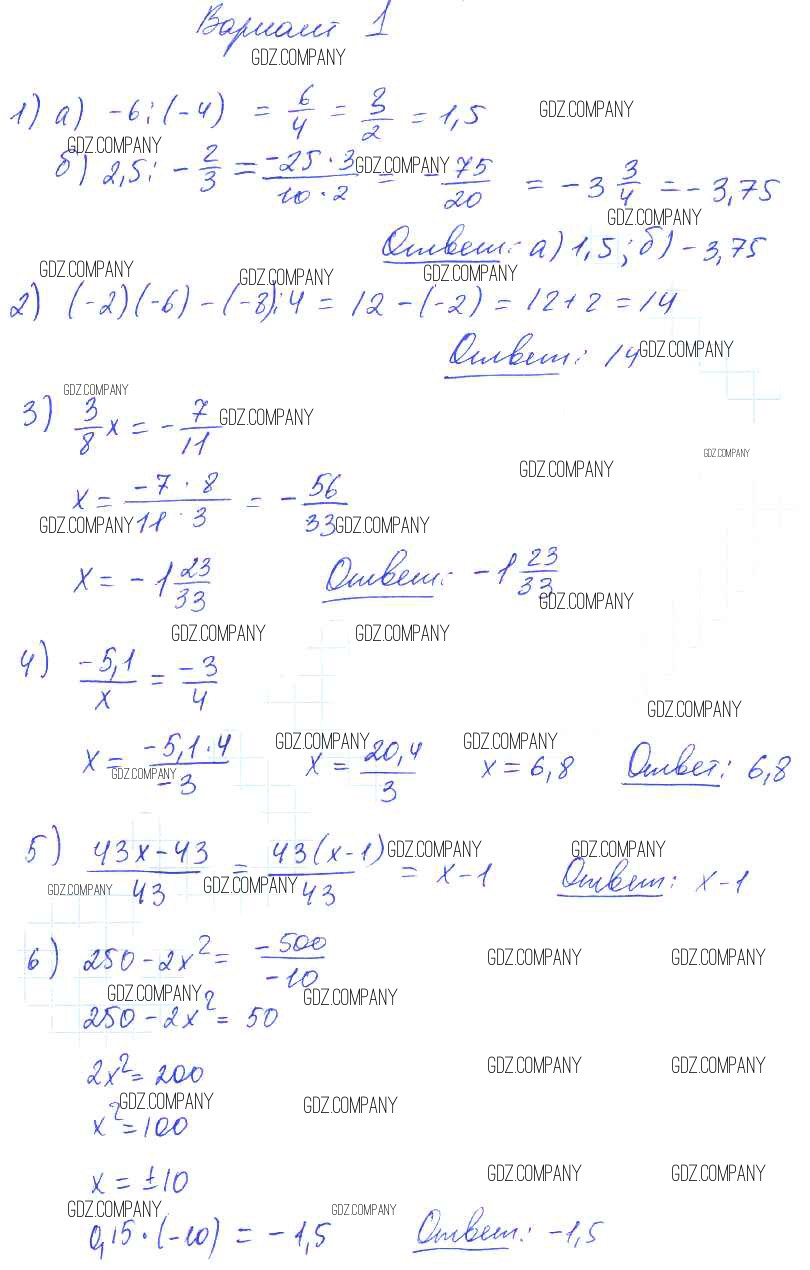 Вариант 1
GDZ.COMPANY
1) а) -6 : (-4) = 6/4 = 3/2 = 1,5 GDZ.COMPANY
GDZ.COMPANY
б) 2,5 : - 2/3 = -25 · 3/10 · 2 GDZ.COMPANY = - 75/20 = -3 3/4 = -3,75
GDZ.COMPANY
Ответ: а) 1,5; б) -3,75
GDZ.COMPANY GDZ.COMPANY GDZ.COMPANY
2) (-2)(-6) - (-8):4 = 12 - (-2) = 12 + 2 = 14
Ответ: 14 GDZ.COMPANY
GDZ.COMPANY
3) 3/8 x = - 7/11 GDZ.COMPANY
GDZ.COMPANY GDZ.COMPANY
x = -7 · 8/11 · 3 = - 56/33
GDZ.COMPANY GDZ.COMPANY
x = -1 23/33 Ответ: -1 23/33
GDZ.COMPANY
GDZ.COMPANY GDZ.COMPANY
4) -5,1/x = -3/4
GDZ.COMPANY
GDZ.COMPANY GDZ.COMPANY
x = -5,1 · 4/-3 x = 20,4/3 x = 6,8 Ответ: 6,8
GDZ.COMPANY
5) 43x - 43/43 = 43(x - 1)/43 = x - 1 Ответ: x - 1
GDZ.COMPANY GDZ.COMPANY
GDZ.COMPANY GDZ.COMPANY
6) 250 - 2x² = -500/-10 GDZ.COMPANY GDZ.COMPANY
GDZ.COMPANY GDZ.COMPANY
250 - 2x² = 50
2x² = 200 GDZ.COMPANY GDZ.COMPANY
GDZ.COMPANY GDZ.COMPANY
x² = 100
x = ±10 GDZ.COMPANY GDZ.COMPANY
GDZ.COMPANY GDZ.COMPANY
0,15 · (-10) = -1,5 Ответ: -1,5